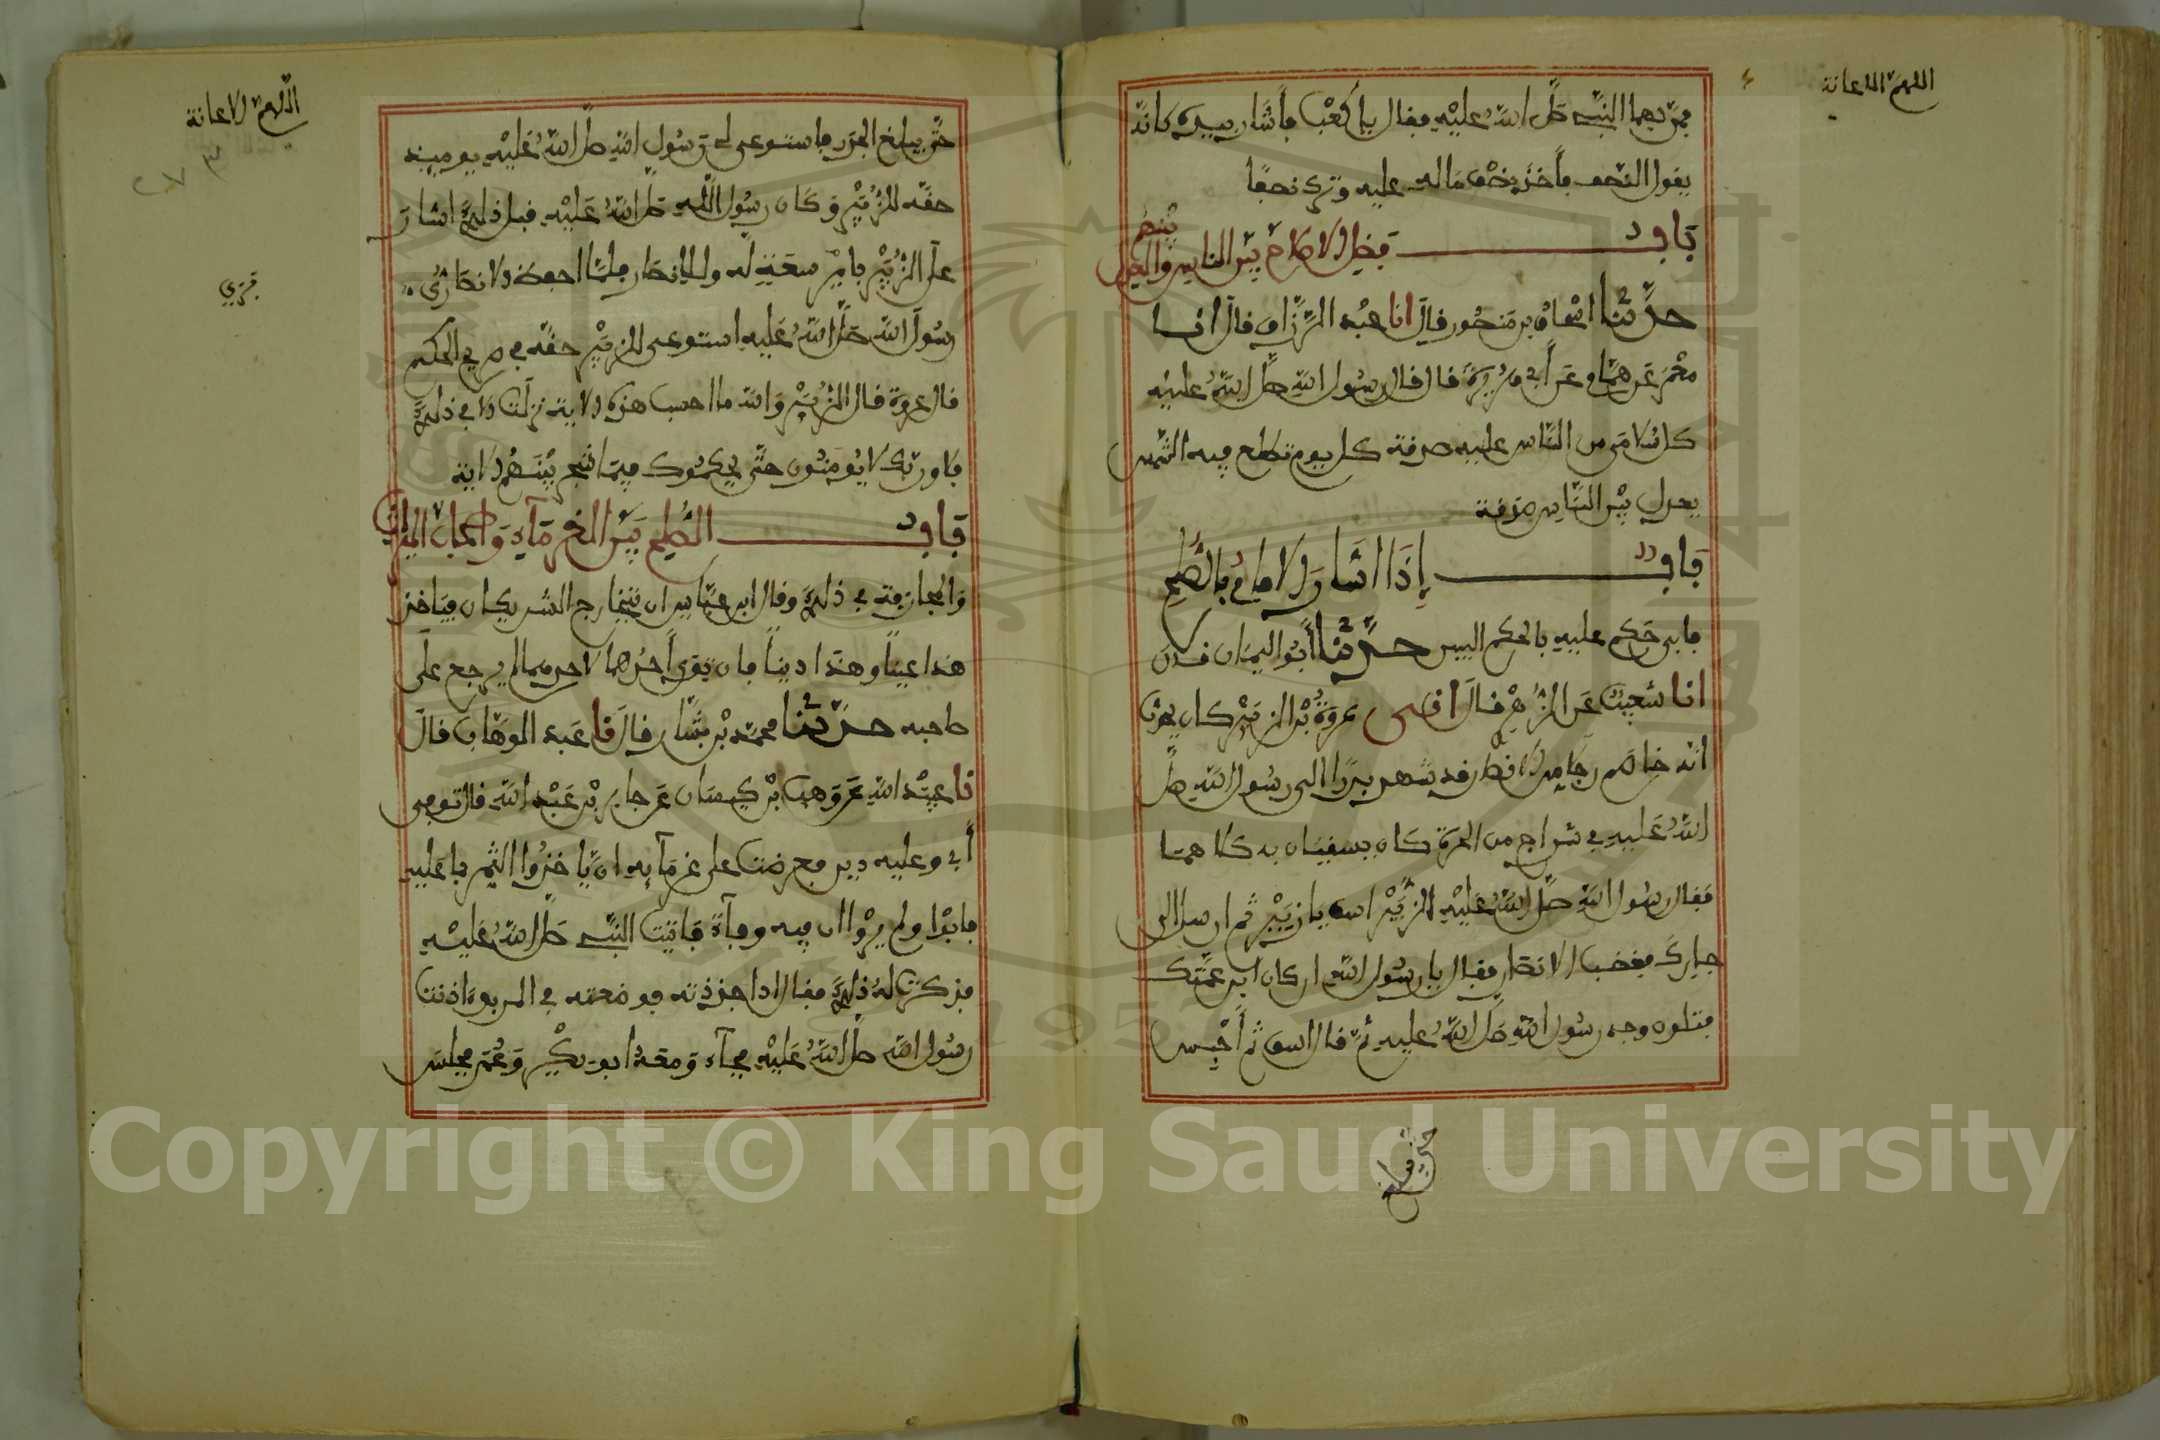 اللهم الاعانة
فمر بهما النبي صلى الله عليه فقال يا كعب فأشار بيده كانه
يقول النصف فأخذ نصف ماله عليه وترك نصفا
باب فضل الاصلاح بين الناس والعدل بينهم
حدثنا اسحاق بن منصور قال انا عبد الرزاق قال انا
معمر عن همام عن أبي هريرة قال قال رسول الله صلى الله عليه
كل سلامى من الناس عليه صدقة كل يوم تطلع فيه الشمس
يعدل بين الناس صدقة
باب إذا اشار الامام بالصلح
فابى حكم عليه بالحكم البين حدثنا أبو اليمان قال
انا شعيب عن الزهري قال اخبرني عروة بن الزبير كان يحدث
انه خاصم رجلا من الانصار قد شهد بدرا الى رسول الله صلى
الله عليه في شراج من الحرة كان يسقيان به كلاهما
فقال رسول الله صلى الله عليه للزبير اسق يا زبير ثم ارسل الى
جارك فغضب الانصاري فقال يا رسول الله ان كان ابن عمتك
فتلون وجه رسول الله صلى الله عليه ثم قال اسق ثم أحبس
اللهم الاعانة
حتى يبلغ الجدر فاستوعى له رسول الله صلى الله عليه يوميذ
حقه للزبير وكان رسول الله صلى الله عليه قبل ذلك اشار
على الزبير بامر سعة له وللانصاري فلما احفظ الانصاري
رسول الله صلى الله عليه استوعى للزبير حقه في صريح الحكم
قال عروة قال الزبير والله ما احسب هذه الاية نزلت الا في ذلك
فلا وربك لا يؤمنون حتى يحكموك فيما شجر بينهم الاية
باب الصلح بين الغرماء واصحاب الميراث
والمجازفة في ذلك وقال ابن عباس ان يتخارج الشريكان فيأخذ
هذا عينا وهذا دينا فان توي لأحدهما لم يرجع على
صاحبه حدثنا محمد بن بشار قال نا عبد الوهاب قال
نا عبيد الله عن وهب بن كيسان عن جابر بن عبد الله قال توفي
أبي وعليه دين فعرضت على غرمآيه ان يأخذوا الثمر بما عليه
فابوا ولم يروا ان فيه وفآء فاتيت النبي صلى الله عليه
فذكرت له ذلك فقال اذا جذذته فوضعته في المربد اذنت
رسول الله صلى الله عليه فجآء ومعه ابو بكر وعمر فجلس